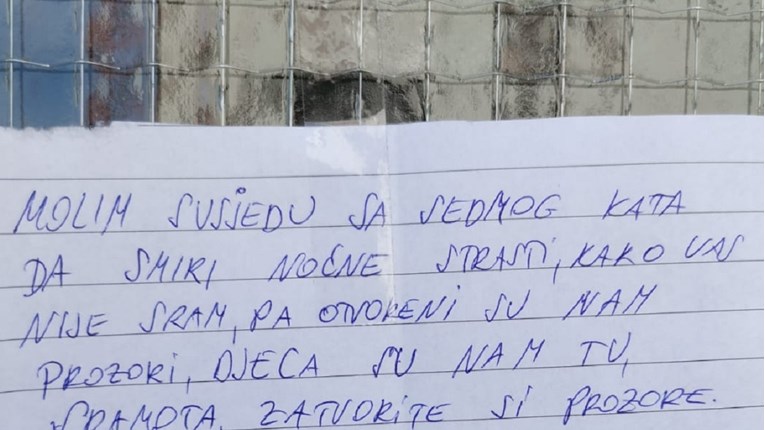 MOLIM SUSJEDU SA SEDMOG KATA
DA SMIRI NOĆNE STRASTI, KAKO VAS
NIJE SRAM, PA OTVORENI SU NAM
PROZORI, DJECA SU NAM TU,
SRAMOTA. ZATVORITE SI PROZORE.